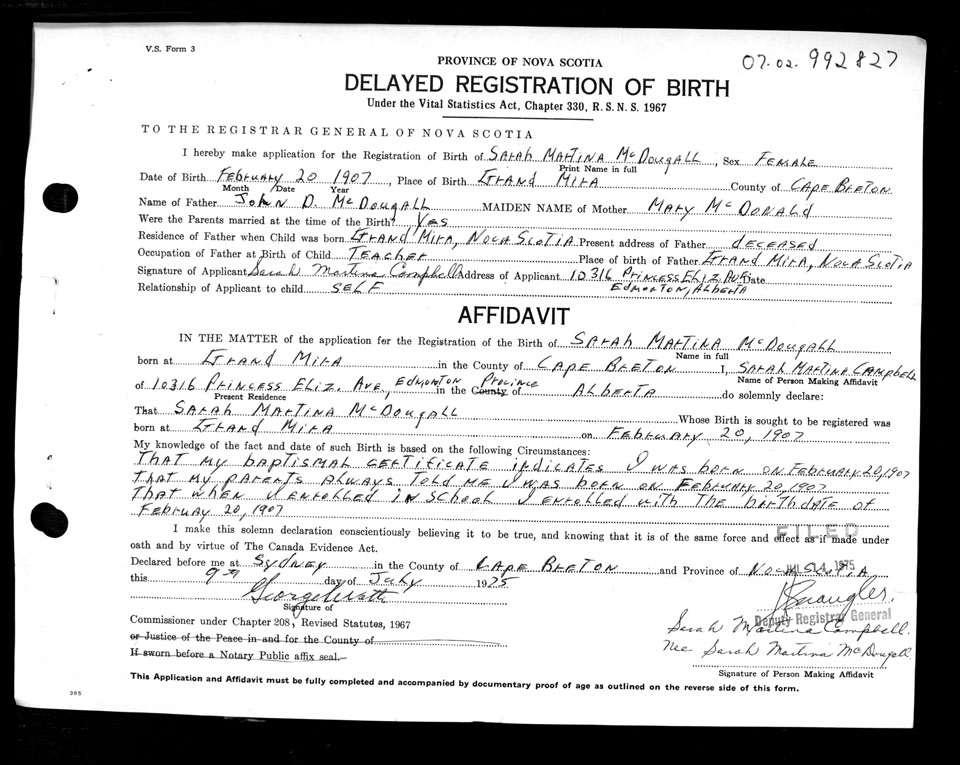 V.S. Form 3
07.02. 992827
PROVINCE OF NOVA SCOTIA
DELAYED REGISTRATION OF BIRTH
Under the Vital Statistics Act, Chapter 330, R.S.N.S. 1967
TO THE REGISTRAR GENERAL OF NOVA SCOTIA
I hereby make application for the Registration of Birth of SARAH MARTINA McDOUGALL, Sex FEMALE
Print Name in full
Date of Birth FEBRUARY 20 1907, Place of Birth GRAND MIRA County of CAPE BRETON
Month Date Year
Name of Father JOHN D. McDOUGALL MAIDEN NAME of Mother MARY McDONALD
Were the Parents married at the time of the Birth? YES
Residence of Father when Child was born GRAND MIRA, NOVA SCOTIA Present address of Father DECEASED
Occupation of Father at Birth of Child TEACHER Place of birth of Father GRAND MIRA, NOVA SCOTIA
Signature of Applicant Sarah Martina Campbell Address of Applicant 10316 PRINCESS ELIZ. AVE. Date
EDMONTON, ALBERTA
Relationship of Applicant to child SELF
AFFIDAVIT
IN THE MATTER of the application fer the Registration of the Birth of SARAH MARTINA McDOUGALL
Name in full
born at GRAND MIRA in the County of CAPE BRETON I, SARAH MARTINA CAMPBELL
Name of Person Making Affidavit
of 10316 PRINCESS ELIZ. AVE, EDMONTON in the County PROVINCE of ALBERTA do solemnly declare:
Present Residence
That SARAH MARTINA McDOUGALL Whose Birth is sought to be registered was
born at GRAND MIRA on FEBRUARY 20, 1907
My knowledge of the fact and date of such Birth is based on the following Circumstances:
THAT MY BAPTISMAL CERTIFICATE INDICATES I WAS BORN ON FEBRUARY 20, 1907
THAT MY PARENTS ALWAYS TOLD ME I WAS BORN ON FEBRUARY 20, 1907
THAT WHEN I ENROLLED IN SCHOOL I ENROLLED WITH THE BIRTHDATE OF
FEBRUARY 20, 1907
FILED
I make this solemn declaration conscientiously believing it to be true, and knowing that it is of the same force and effect as if made under
oath and by virtue of The Canada Evidence Act.
Declared before me at SYDNEY in the County of CAPE BRETON and Province of NOVA SCOTIA
JUL 14 1975
this 9TH day of JULY 1975
Signature of
Commissioner under Chapter 208, Revised Statutes, 1967
Deputy Registrar General
or Justice of the Peace in and for the County of
Sarah Martina Campbell.
If sworn before a Notary Public affix seal.
Nee Sarah Martina McDougall
Signature of Person Making Affidavit
This Application and Affidavit must be fully completed and accompanied by documentary proof of age as outlined on the reverse side of this form.
385